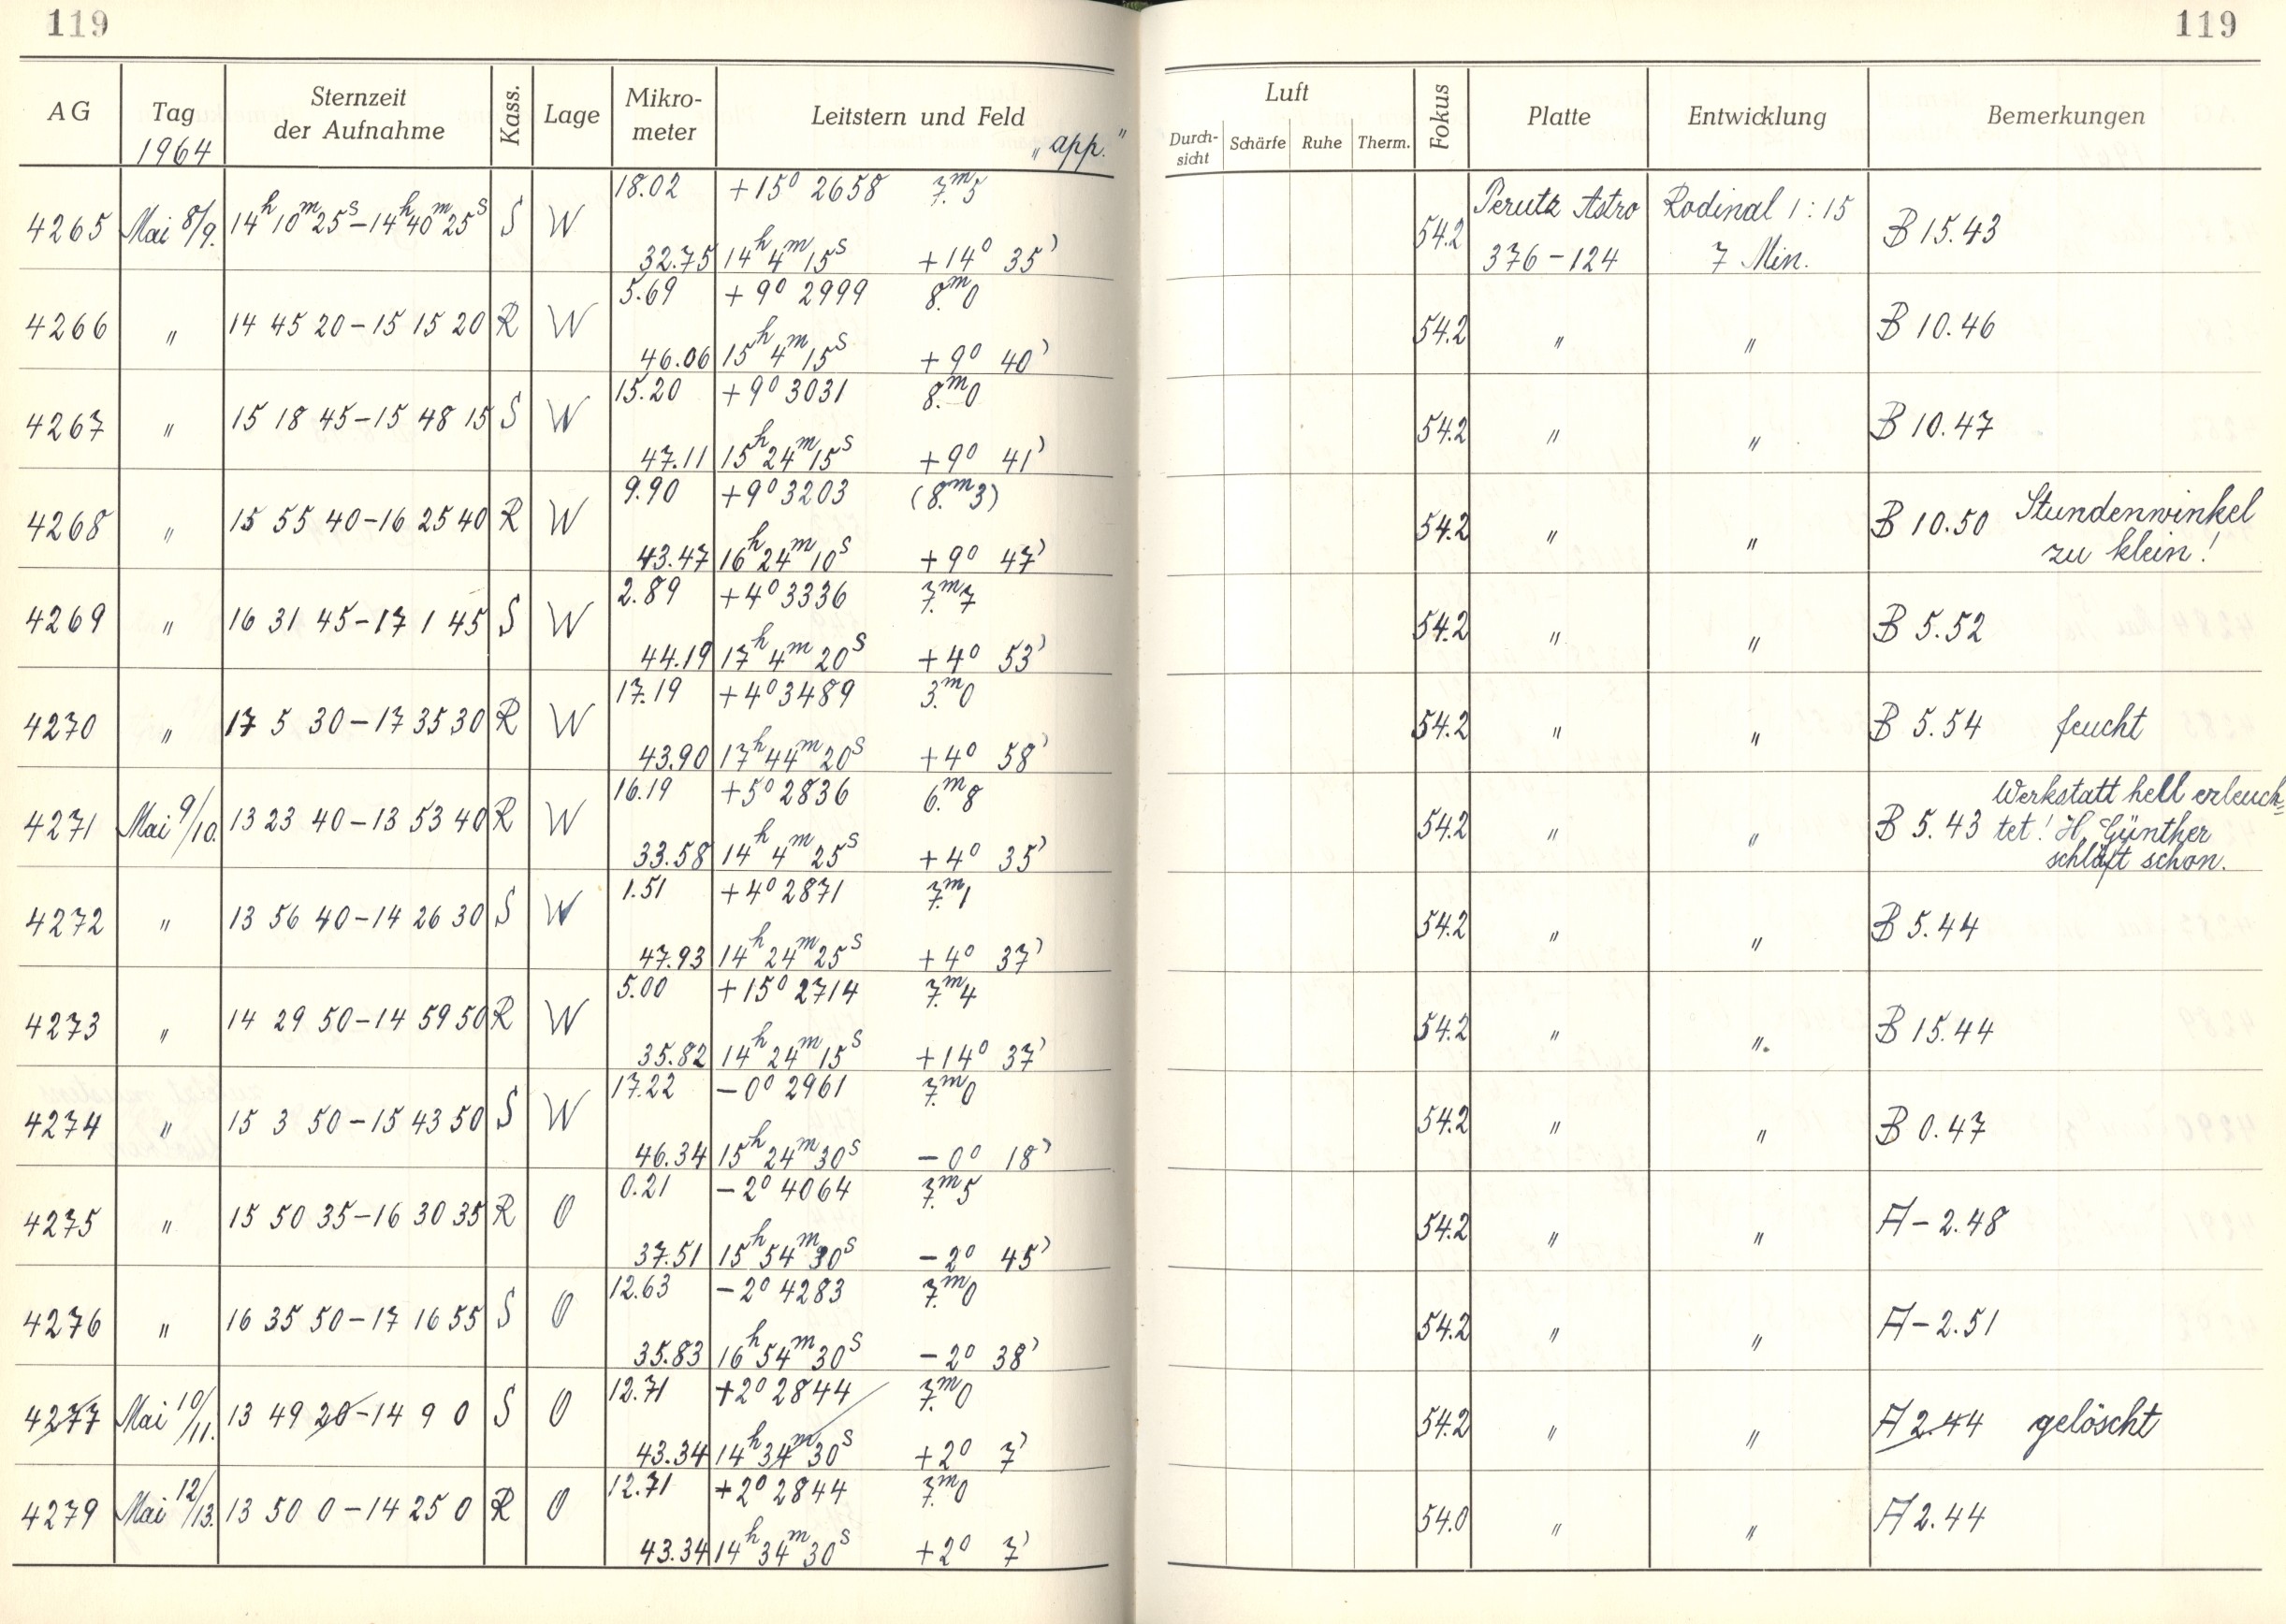 119
119
AG Tag 1964 Sternzeit der Aufnahme Kass. Lage Mikro-meter Leitstern und Feld "app." Luft Durch-sicht Schärfe Ruhe Therm. Fokus Platte Entwicklung Bemerkungen
18.02 +15° 2658 7.m5 Perutz Astro Rodinal 1:15
4265 Mai 8/9. 14h 10m 25s – 14h 40m 25s S W 54.2 B 15.43
32.75 14h 4m 15s +14° 35' 376-124 7 Min.
5.69 +9° 2999 8.m0
4266 " 14 45 20 – 15 15 20 R W 54.2 " " B 10.46
46.06 15h 4m 15s +9° 40'
15.20 +9° 3031 8.m0
4267 " 15 18 45 – 15 48 15 S W 54.2 " " B 10.47
47.11 15h 24m 15s +9° 41'
9.90 +9° 3203 (8.m3)
4268 " 15 55 40 – 16 25 40 R W 54.2 " " B 10.50 Stundenwinkel
43.47 16h 24m 10s +9° 47' zu klein!
2.89 +4° 3336 7.m7
4269 " 16 31 45 – 17 1 45 S W 54.2 " " B 5.52
44.19 17h 4m 20s +4° 53'
17.19 +4° 3489 3.m0
4270 " 17 5 30 – 17 35 30 R W 54.2 " " B 5.54 feucht
43.90 17h 44m 20s +4° 58'
16.19 +5° 2836 6.m8 Werkstatt hell erleuch=
4271 Mai 9/10. 13 23 40 – 13 53 40 R W 54.2 " " B 5.43 tet! H. Günther
33.58 14h 4m 25s +4° 35' schläft schon.
1.51 +4° 2871 7.m1
4272 " 13 56 40 – 14 26 30 S W 54.2 " " B 5.44
47.93 14h 24m 25s +4° 37'
5.00 +15° 2714 7.m4
4273 " 14 29 50 – 14 59 50 R W 54.2 " " B 15.44
35.82 14h 24m 15s +14° 37'
17.22 –0° 2961 7.m0
4274 " 15 3 50 – 15 43 50 S W 54.2 " " B 0.47
46.34 15h 24m 30s –0° 18'
0.21 –2° 4064 7.m5
4275 " 15 50 35 – 16 30 35 R O 54.2 " " A – 2.48
37.51 15h 54m 30s –2° 45'
12.63 –2° 4283 7.m0
4276 " 16 35 50 – 17 16 55 S O 54.2 " " A – 2.51
35.83 16h 54m 30s –2° 38'
12.71 +2° 2844 7.m0
4277 Mai 10/11. 13 49 20 – 14 9 0 S O 54.2 " " A 2.44 gelöscht
43.34 14h 34m 30s +2° 7'
12.71 +2° 2844 7.m0
4279 Mai 12/13. 13 50 0 – 14 25 0 R O 54.0 " " A 2.44
43.34 14h 34m 30s +2° 7'